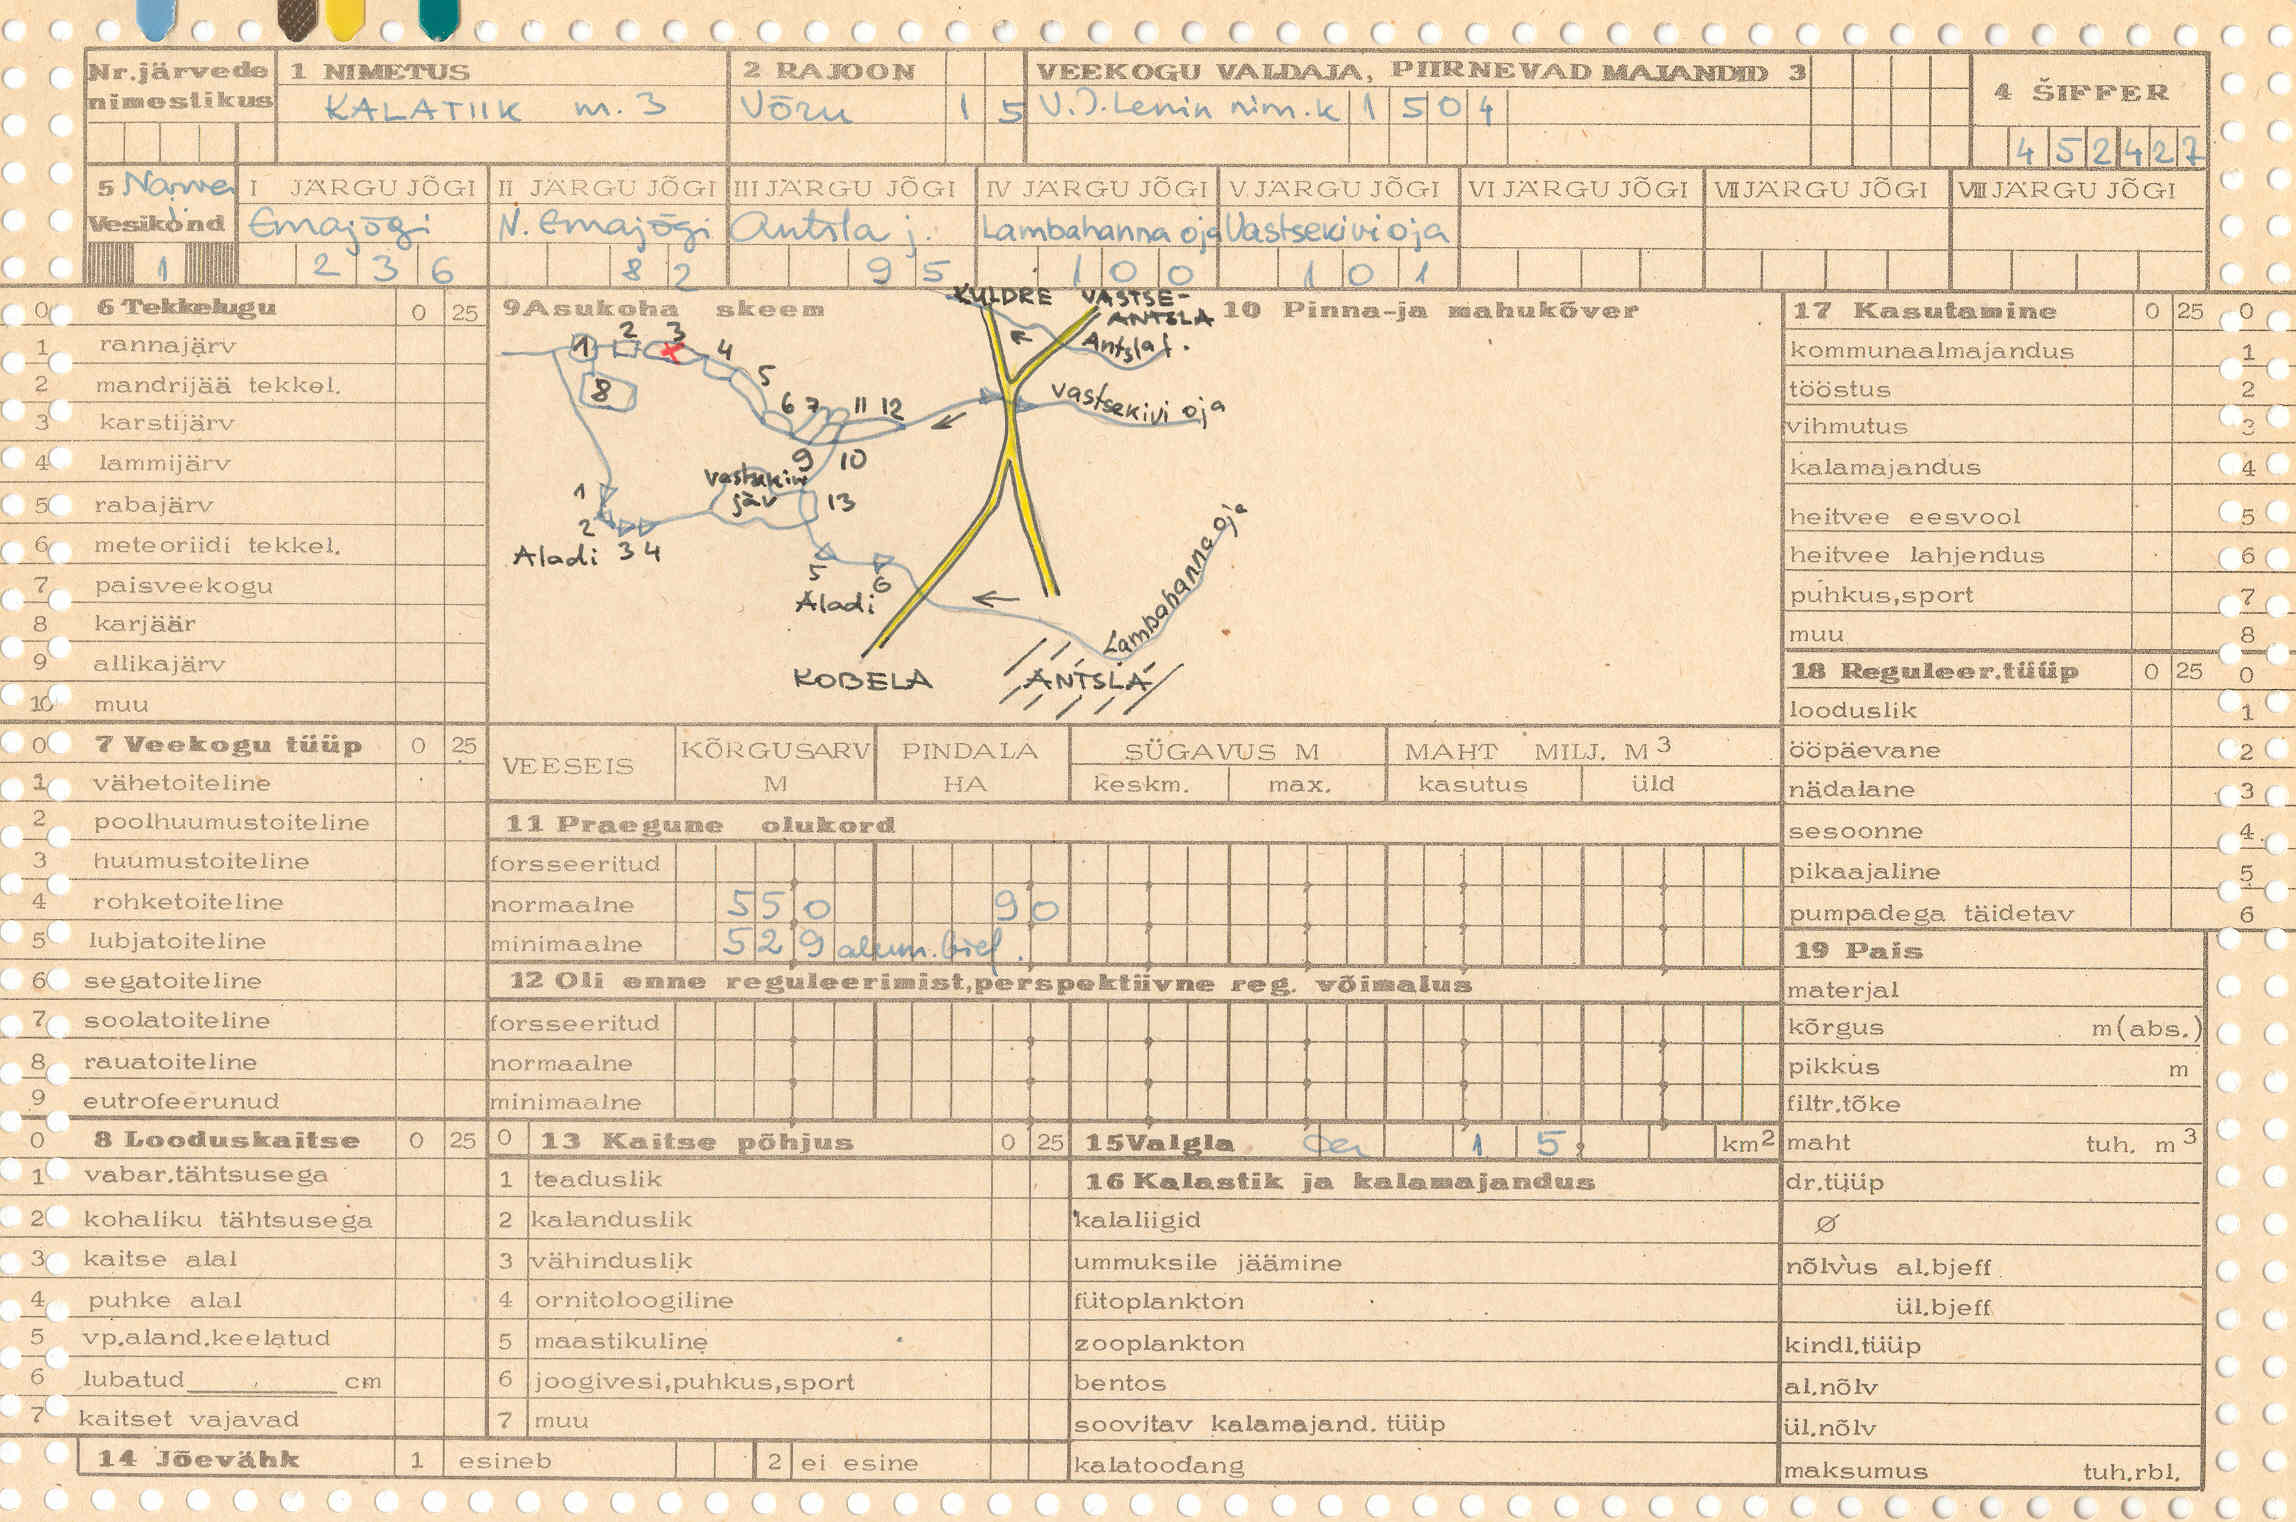 Nr.järvede nimestikus
1 NIMETUS
KALATIIK m. 3
2 RAJOON
Võru 1 5
VEEKOGU VALDAJA, PIIRNEVAD MAJANDID 3
V.I.Lenin nim.k 1 5 0 4
4 ŠIFFER
4 5 2 4 2 7
5 Narva Vesikond
1
I JÄRGU JÕGI
Emajõgi
2 3 6
II JÄRGU JÕGI
N. Emajõgi
8 2
III JÄRGU JÕGI
Antsla j.
9 5
IV JÄRGU JÕGI
Lambahanna oja
1 0 0
V JÄRGU JÕGI
Vastsekivi oja
1 0 1
VI JÄRGU JÕGI
VII JÄRGU JÕGI
VIII JÄRGU JÕGI
0 6 Tekkelugu 0 25
1 rannajärv
2 mandrijää tekkel.
3 karstijärv
4 lammijärv
5 rabajärv
6 meteoriidi tekkel.
7 paisveekogu
8 karjäär
9 allikajärv
10 muu
0 7 Veekogu tüüp 0 25
1 vähetoiteline
2 poolhuumustoiteline
3 huumustoiteline
4 rohketoiteline
5 lubjatoiteline
6 segatoiteline
7 soolatoiteline
8 rauatoiteline
9 eutrofeerunud
0 8 Looduskaitse 0 25
1 vabar.tähtsusega
2 kohaliku tähtsusega
3 kaitse alal
4 puhke alal
5 vp.aland.keelatud
6 lubatud cm
7 kaitset vajavad
14 Jõevähk 1 esineb 2 ei esine
9 Asukoha skeem
KULDRE VASTSE-
ANTSLA
Antsla j.
1 2 3 4
8 5
6 7 11 12
vastsekivi oja
9 10
vastsekivi
järv 13
1
2
Aladi 3 4
5 6
Aladi
Lambahanna oja
KOBELA ANTSLA
10 Pinna-ja mahukõver
VEESEIS
KÕRGUSARV M
PINDALA HA
SÜGAVUS M
keskm. max.
MAHT MILJ. M3
kasutus üld
11 Praegune olukord
forsseeritud
normaalne 5 5 0 9 0
minimaalne 5 2 9 alum. bief.
12 Oli enne reguleerimist,perspektiivne reg. võimalus
forsseeritud
normaalne
minimaalne
0 13 Kaitse põhjus 0 25
1 teaduslik
2 kalanduslik
3 vähinduslik
4 ornitoloogiline
5 maastikuline
6 joogivesi,puhkus,sport
7 muu
15 Valgla ca 1 5 km2
16 Kalastik ja kalamajandus
kalaliigid
ummuksile jäämine
fütoplankton
zooplankton
bentos
soovitav kalamajand. tüüp
kalatoodang
17 Kasutamine 0 25 0
kommunaalmajandus 1
tööstus 2
vihmutus 3
kalamajandus 4
heitvee eesvool 5
heitvee lahjendus 6
puhkus,sport 7
muu 8
18 Reguleer.tüüp 0 25 0
looduslik 1
ööpäevane 2
nädalane 3
sesoonne 4
pikaajaline 5
pumpadega täidetav 6
19 Pais
materjal
kõrgus m(abs.)
pikkus m
filtr.tõke
maht tuh. m3
dr.tüüp
Ø
nõlvus al.bjeff
ül.bjeff
kindl.tüüp
al.nõlv
ül.nõlv
maksumus tuh.rbl.